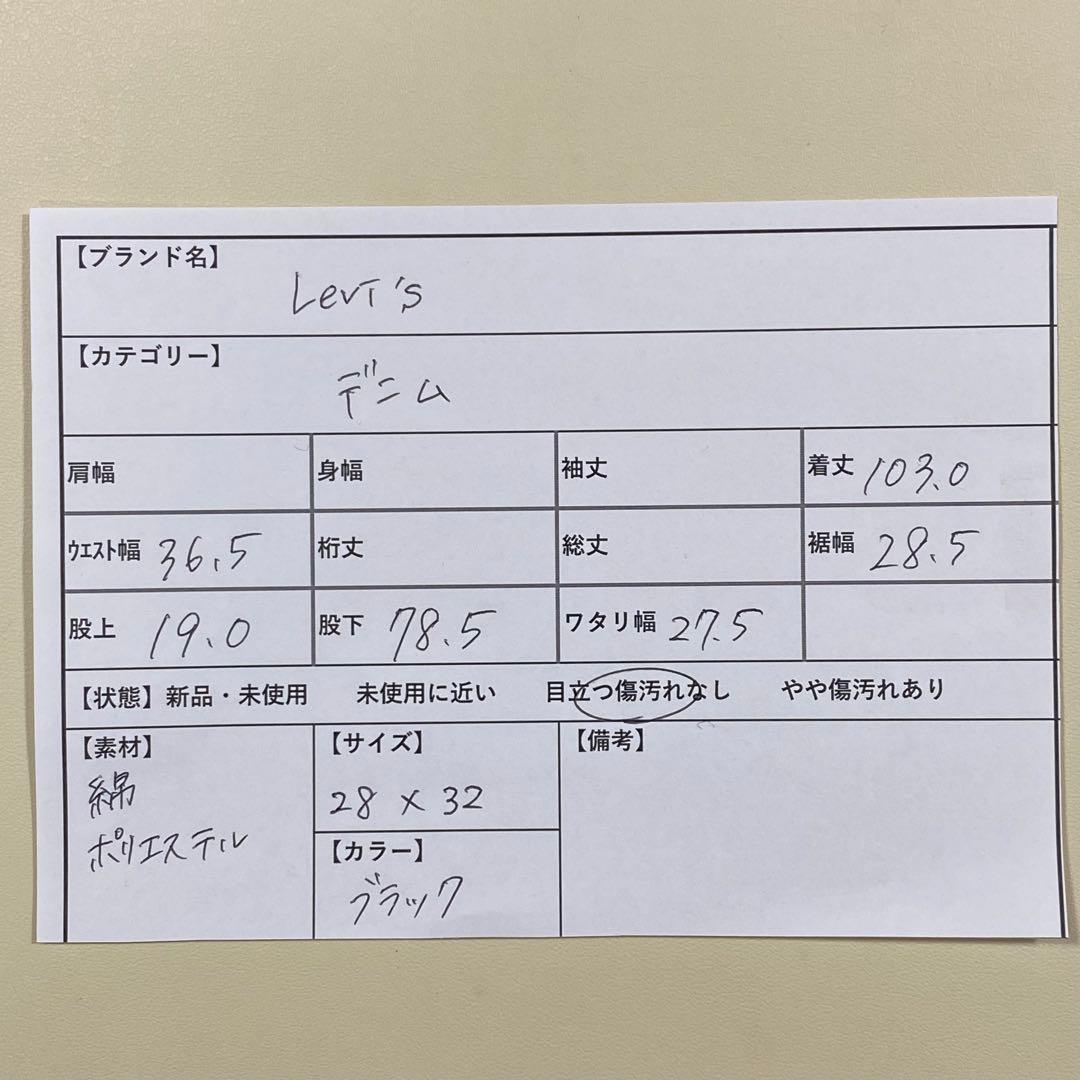 【ブランド名】
Levi's
【カテゴリー】
デニム
肩幅 身幅 袖丈 着丈 103.0
ウエスト幅 36.5 裄丈 総丈 裾幅 28.5
股上 19.0 股下 78.5 ワタリ幅 27.5
【状態】新品・未使用 未使用に近い 目立つ傷汚れなし やや傷汚れあり
【素材】
綿
ポリエステル
【サイズ】
28 × 32
【カラー】
ブラック
【備考】